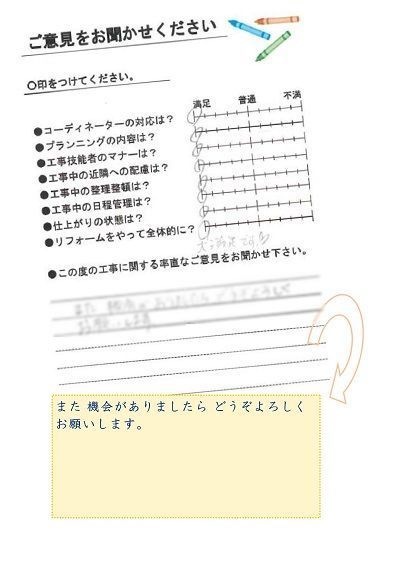 ご意見をお聞かせください
〇印をつけてください。
満足 普通 不満
●コーディネーターの対応は？
●プランニングの内容は？
●工事技能者のマナーは？
●工事中の近隣への配慮は？
●工事中の整理整頓は？
●工事中の日程管理は？
●仕上がりの状態は？
●リフォームをやって全体的に？
大満足です
●この度の工事に関する率直なご意見をお聞かせ下さい。
また 機会がありましたら どうぞよろしく
お願いします
また 機会がありましたら どうぞよろしく
お願いします。